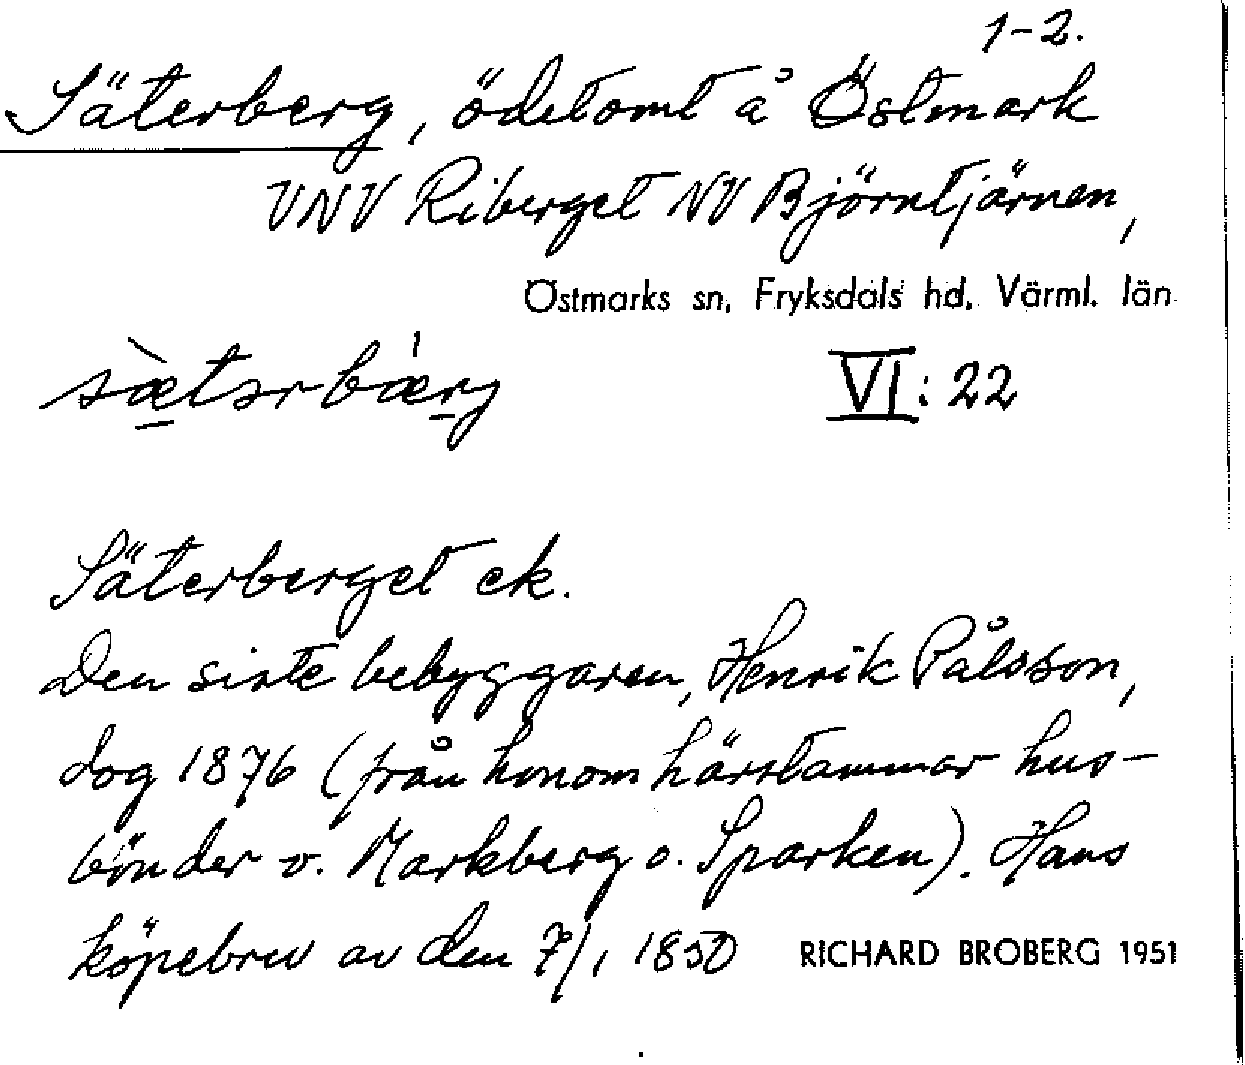 1-2.
Säterberg, ödetomt å Östmark
VNV Riberget NV Björntjärnen,
Östmarks sn, Fryksdals hd, Värml. län
sæ̀tərbæ̀rg
VI: 22
Säterberget ek.
Den siste bebyggaren, Henrik Pålsson,
dog 1876 (från honom härstammar hus-
bönder v. Markberg o. Sparken). Hans
köpebrev av den 7/1 1850 RICHARD BROBERG 1951